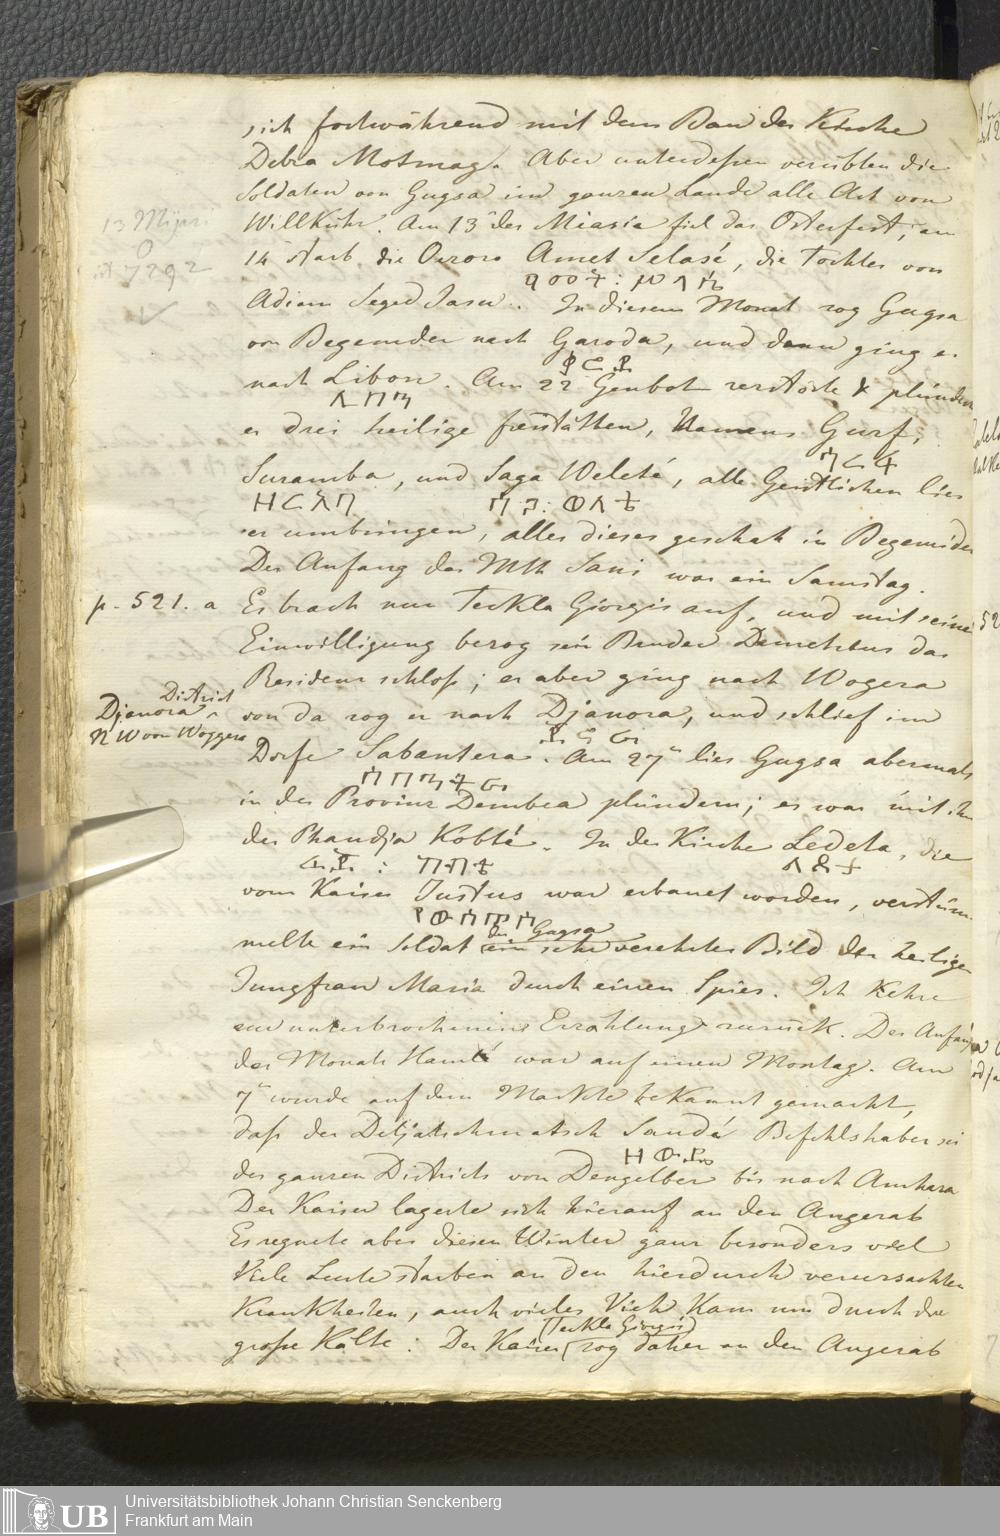 sich fortwährend mit dem Bau der Kirche
Debra Motmag. Aber unterdessen verübten die
Soldaten von Gugsa im ganzen Lande alle Art von
Willkühr. Am 13 der Miasia fiel das Osterfest, am
13 Miasi
7292
14 starb die Oezoro Amet Selasé, die Tochter von
Adiam Seged Jasu. In diesem Monat zog Gugsa
von Begemder nach Garoda, und dann ging er
nach Libon. Am 22 Genbot zerstörte & plünderte
er drei heilige Freistätten, Namens Gurf,
Suramba, und Saga Weleté, alle Geistlichen lies
er umbringen, alles dieses geschah in Begemder
Der Anfang des Mth Sani war ein Samstag.
p. 521. a
Es brach nun Teckla Giorgis auf, und mit seiner
Einwilligung bezog sein Bruder Demetrius das
Residenzschloß; er aber ging nach Wogera
District
Djanora
N W von Woggera
von da zog er nach Djanora, und schlief im
Dorfe Sabantera. Am 27 lies Gugsa abermals
in der Provinz Dembea plündern; es war mit ihm
der Phandja Kobté. In der Kirche Ledeta, die
vom Kaiser Justus war erbauet worden, verstüm
des Gugsa
melte ein Soldat ein sehr verehrtes Bild der heiligen
Jungfrau Maria durch einen Spies. Ich kehre
zur unterbrochenen Erzählung zurück. Der Anfang
des Monats Hamlé war auf einen Montag. Am
7 wurde auf dem Markte bekannt gemacht,
daß der Detjatschmatsch Saudé Befehlshaber sei
des ganzen Districts von Dengelber bis nach Amhara
Der Kaiser lagerte sich hierauf an den Angerab
Es regnete aber diesen Winter ganz besonders viel
Viele Leute starben an den hierdurch verursachten
Krankheiten, auch vieles Vieh kam um durch die
(Teckla Giorgis)
große Kälte. Der Kaiser zog daher an den Angerab
UB
Universitätsbibliothek Johann Christian Senckenberg
Frankfurt am Main